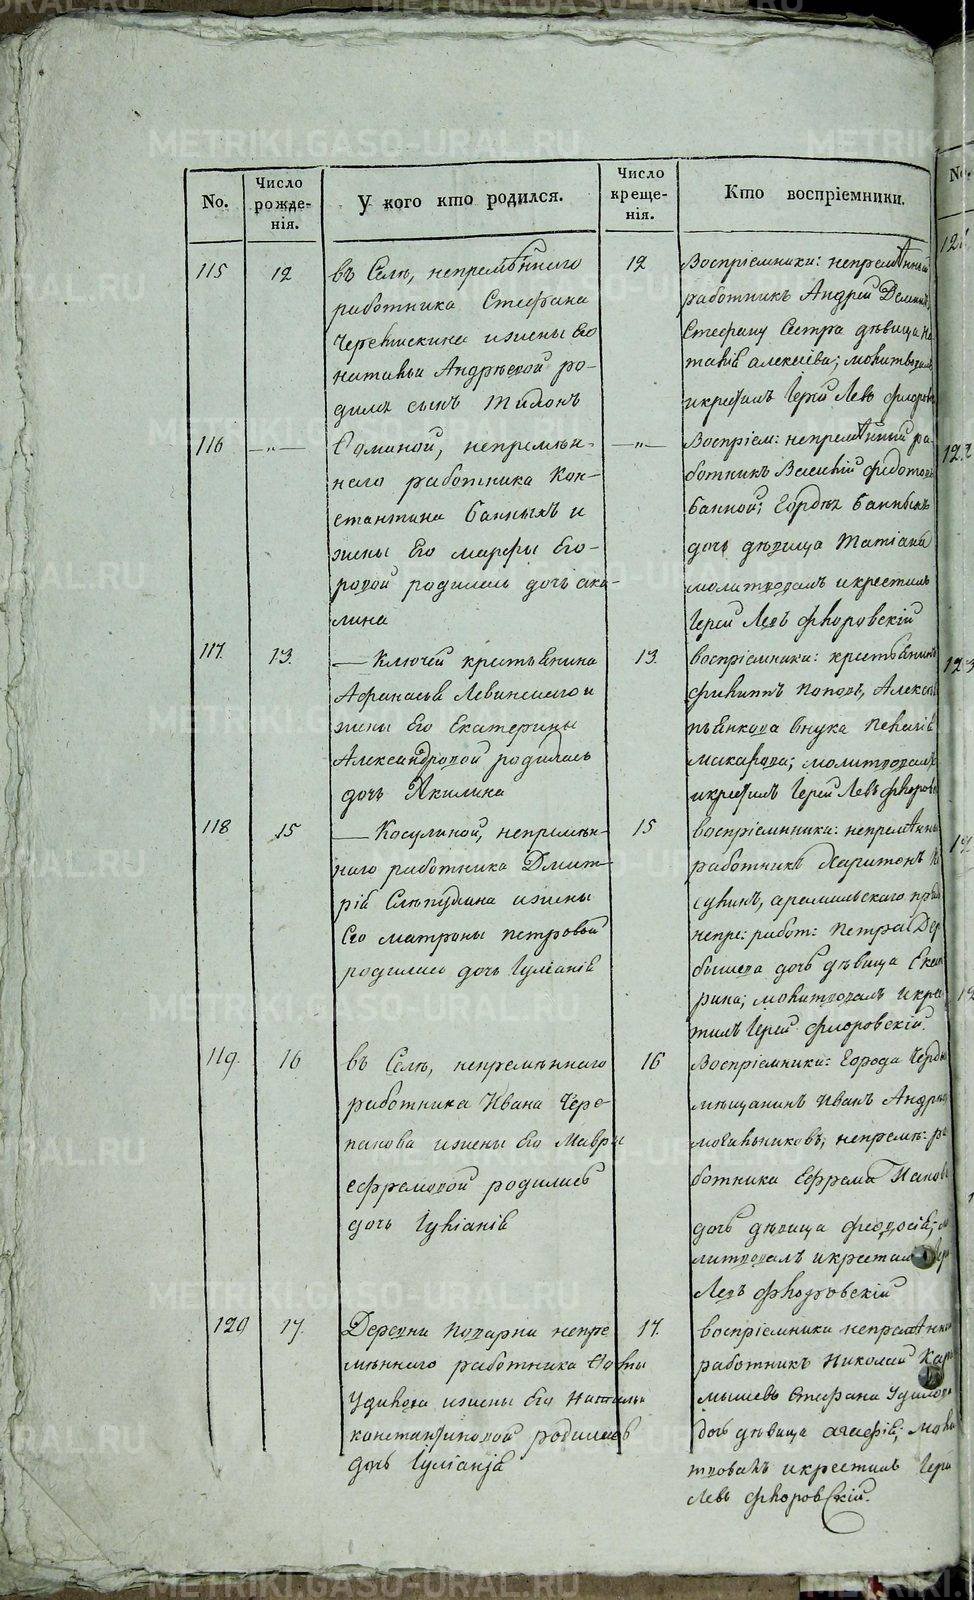 METRIKI.GASO-URAL.RU
No.
Число рожде-нія.
У кого кто родился.
Число креще-нія.
Кто воспріемники.
115
12
въ Селѣ, непремѣннаго
работника Стефана
изжены Его
натальи Андрѣевой ро-
дился сынъ
12
Воспріемники: непремѣнный
работникъ Андрей
Стефану Сестра дѣвица На
талія алексіева; молитвовалъ
икрестилъ Іерей Левъ флоровс
116
—„—
непремѣн-
наго работника Кон-
стантина Банныхъ и
жены Его марфы Его-
ровой родилась дочь аки-
лина
—„—
Воспріем: непремѣнный ра-
ботникъ Василій федотовъ
банной; Банныхъ
дочь дѣвица Татіана
молитвовалъ икрестилъ
Іерей Левъ флоровскій
117.
13.
— Ключей крестьянина
Афанасья Левинскаго и
жены Его Екатерины
Александровой родилась
дочь Акилина
13.
воспріемники: крестьянинъ
филиппъ поповъ, Алексѣ
внука пелагія
макарова; молитвовалъ
икрестилъ Іерей Левъ флоровс
118
15
— Косулиной, непремѣн-
наго работника Дмит-
рія изжены
Его матроны петровой
родилась дочь Іуліанія
15
воспріемники: непремѣнны
работникъ Харитонъ
арамильскаго
непре: работ: петра Дер
бышева дочь дѣвица Екате
рина; молитвовалъ икрес
тилъ Іерей флоровскій.
119.
16
въ Селѣ, непремѣннаго
работника Ивана Чере-
панова изжены Его Мавры
ефремовой родилась
дочь Іуліанія
16
Воспріемники: города
мѣщанинъ Иванъ Андрѣ
могильниковъ, непремѣ: ра
ботника Ефрема Панов
дочь дѣвица феодосія; мо
литвовалъ икрестилъ Іере
Левъ флоровскій
120
17.
Деревни поварни непре
мѣннаго работника
Удилова изжены Его Натальи
константиновой родилась
дочь Іуліанія
17.
воспріемники непремѣнно
работникъ Николай Кар
мышевъ Стефана Удилова
дочь дѣвица агафія; моли
твовалъ икрестилъ Іере
Левъ флоровскій.
No.
122
123